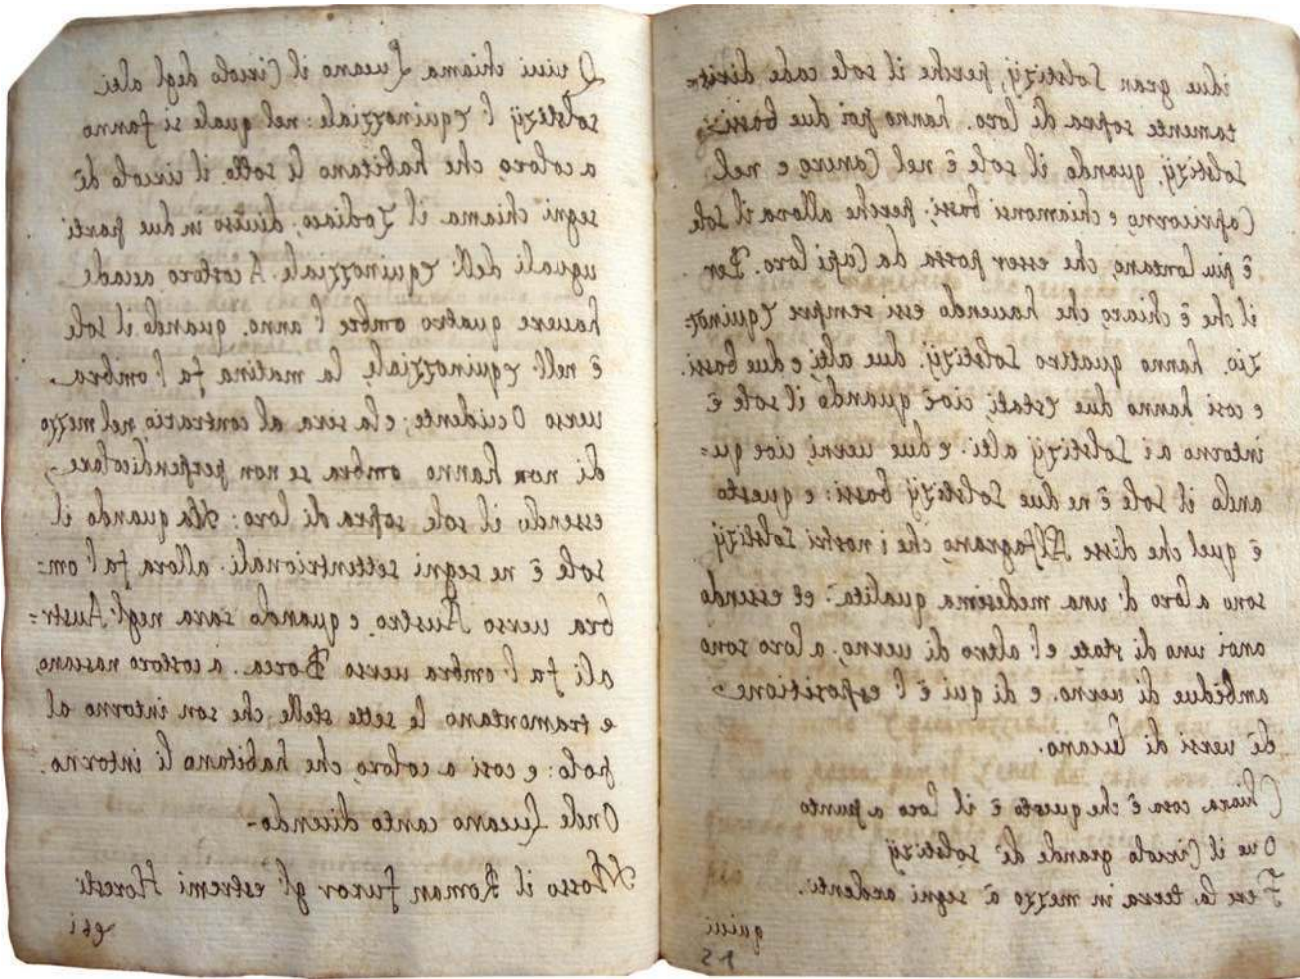 i due gran Solstizÿ, perche il sole cade dirit=
tamente sopra di loro. hanno poi due bassi
Solstizÿ, quando il sole è nel Cancro, e nel
Capricorno, e chiamansi bassi; perche allora il sole
è piu lontano, che esser possa da Capi loro. Per
il che è chiaro, che hauendo essi sempre Equinoz=
zio, hanno quattro Solstizÿ. due alti, e due bassi.
e cosi hanno due estati, cioè quando il sole è
intorno a i Solstizÿ alti. e due uerni, cioe qu=
ando il sole è ne due Solstizÿ bassi: e questo
è quel che disse Alfagrano, che i nostri Solstizÿ
sono a loro d'una medesima qualita: et essendo
a noi uno di state e l'altro di uerno, a loro sono
ambidue di uerno. e di qui è l'espositione
dè uersi di lucano.
Chiara cosa è che questo è il loco a punto
Oue il Circolo grande de' solstizÿ
Fere la terra in mezzo a' segni ardenti.
quiui
Quiui chiama Lucano il Circolo degli alti
solstizÿ l'Equinozziale: nel quale si fanno
a coloro, che habitano li sotto. il circolo dè
segni chiama il Zodiaco, diuiso in due parti
uguali dell'Equinozziale. A costoro accade
hauere quatro ombre l'anno. quando il sole
è nell'Equinoziale, la matina fa l'ombra
uerso Occidente; e la sera al contrario, nel mezzo
di non hanno ombra se non perpendicolare,
essendo il sole sopra di loro: Ma quando il
sole è ne segni settentrionali. allora fa l'om=
bra uerso Austro. e quando sara negl'Austr=
ali fa l'ombra uerso Borea. a costoro nascano,
e tramontano le sette stelle, che son intorno al
polo: e cosi a coloro, che habitano li intorno.
Onde Lucano canto dicendo
Mosso il Roman furor gl'estremi Horesti